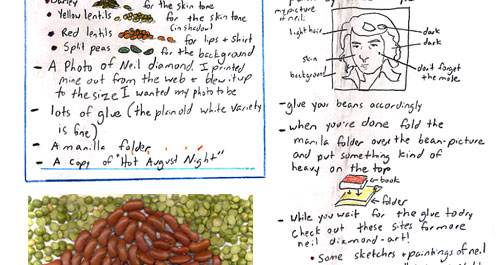 Barley for the skin tone
• Yellow lentils for the skin tone
(in shadow)
• Red lentils for lips + shirt
• Split peas for the background
- A Photo of Neil diamond. I printed
mine out from the web + blew it up
to the size I wanted my photo to be
- lots of glue (the plain old white variety
is fine)
- A manilla folder
- A copy of "Hot August Night"
my picture
of neil:
light hair
dark
dark
skin
background
dont forget
the mole
- glue your beans accordingly
- when you're done fold the
marila folder over the bean-picture
and put something kind of
heavy on the top
book
folder
- while you wait for the glue to dry
check out these sites for more
neil diamond-art!
• Some sketches + paintings of neil